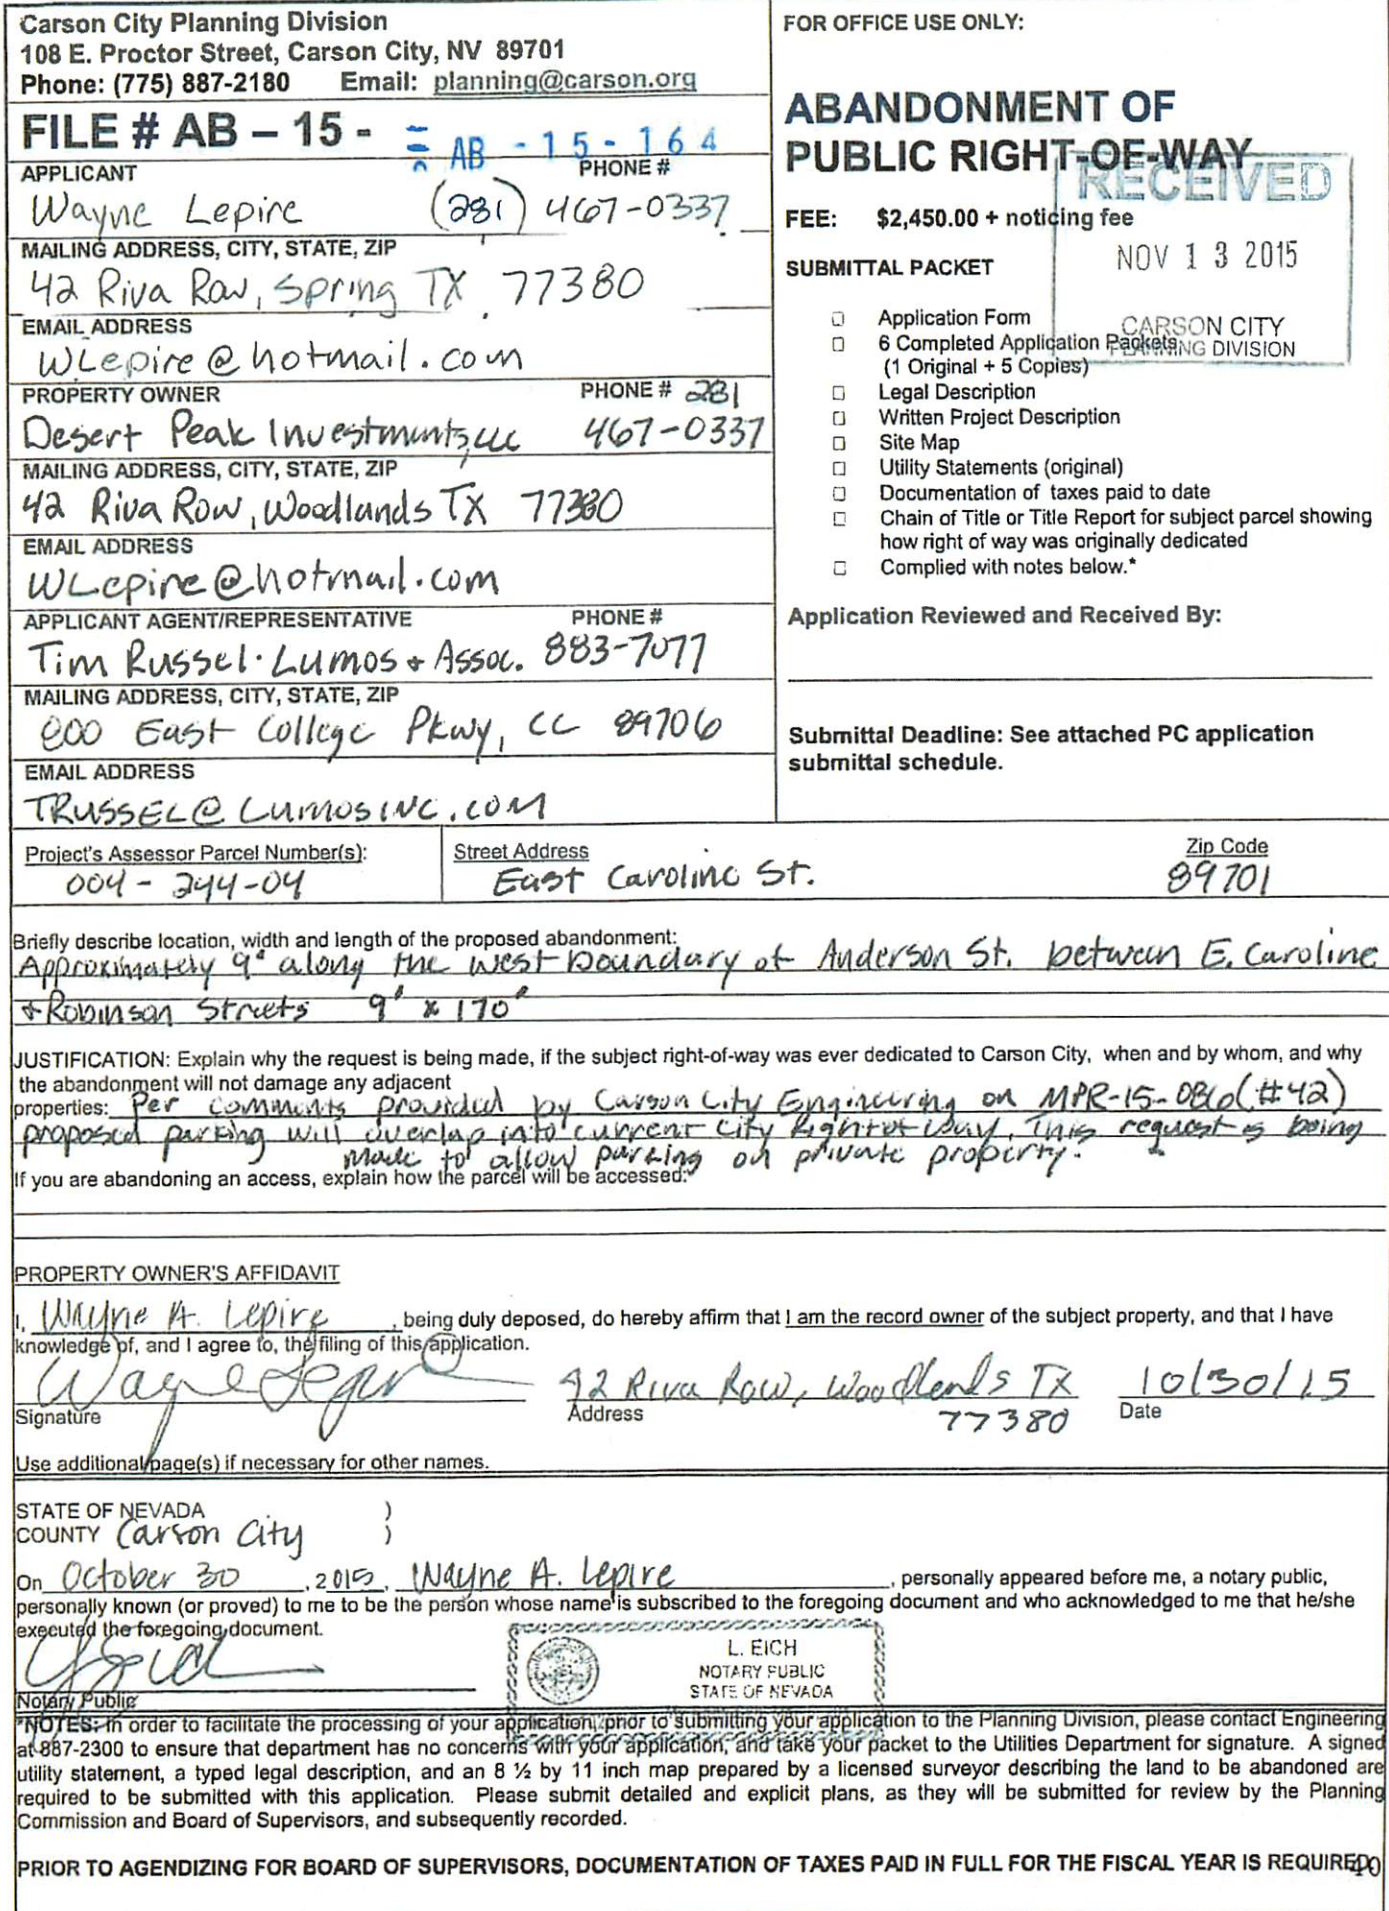 Carson City Planning Division
108 E. Proctor Street, Carson City, NV 89701
Phone: (775) 887-2180 Email: planning@carson.org
FILE # AB – 15 - AB - 15 - 164
APPLICANT PHONE #
Wayne Lepire (281) 467-0337
MAILING ADDRESS, CITY, STATE, ZIP
42 Riva Row, Spring TX 77380
EMAIL ADDRESS
WLepire@hotmail.com
PROPERTY OWNER PHONE # 281
Desert Peak Investments, LLC 467-0337
MAILING ADDRESS, CITY, STATE, ZIP
42 Riva Row, Woodlands TX 77380
EMAIL ADDRESS
WLepire@hotmail.com
APPLICANT AGENT/REPRESENTATIVE PHONE #
Tim Russel · Lumos + Assoc. 883-7077
MAILING ADDRESS, CITY, STATE, ZIP
800 East College Pkwy, CC 89706
EMAIL ADDRESS
TRUSSEL@LUMOSINC.COM
FOR OFFICE USE ONLY:
ABANDONMENT OF
PUBLIC RIGHT-OF-WAY
RECEIVED
NOV 13 2015
CARSON CITY
PLANNING DIVISION
FEE: $2,450.00 + noticing fee
SUBMITTAL PACKET
□ Application Form
□ 6 Completed Application Packets
(1 Original + 5 Copies)
□ Legal Description
□ Written Project Description
□ Site Map
□ Utility Statements (original)
□ Documentation of taxes paid to date
□ Chain of Title or Title Report for subject parcel showing
how right of way was originally dedicated
□ Complied with notes below.*
Application Reviewed and Received By:
Submittal Deadline: See attached PC application
submittal schedule.
Project's Assessor Parcel Number(s): Street Address Zip Code
004-244-04 East Caroline St. 89701
Briefly describe location, width and length of the proposed abandonment:
Approximately 9' along the west boundary of Anderson St. between E. Caroline
+ Robinson Streets 9' x 170'
JUSTIFICATION: Explain why the request is being made, if the subject right-of-way was ever dedicated to Carson City, when and by whom, and why
the abandonment will not damage any adjacent
properties: Per comments provided by Carson City Engineering on MPR-15-086 (#42)
proposed parking will overlap into current City Right of Way. This request is being
made to allow parking on private property.
If you are abandoning an access, explain how the parcel will be accessed:
PROPERTY OWNER'S AFFIDAVIT
I, Wayne A. Lepire, being duly deposed, do hereby affirm that I am the record owner of the subject property, and that I have
knowledge of, and I agree to, the filing of this application.
Wayne Lepire 42 Riva Row, Woodlands TX 10/30/15
Signature Address 77380 Date
Use additional page(s) if necessary for other names.
STATE OF NEVADA )
COUNTY Carson City )
On October 30, 2015, Wayne A. Lepire, personally appeared before me, a notary public,
personally known (or proved) to me to be the person whose name is subscribed to the foregoing document and who acknowledged to me that he/she
executed the foregoing document.
L. EICH
NOTARY PUBLIC
STATE OF NEVADA
Notary Public
*NOTES: In order to facilitate the processing of your application, prior to submitting your application to the Planning Division, please contact Engineering
at 887-2300 to ensure that department has no concerns with your application, and take your packet to the Utilities Department for signature. A signed
utility statement, a typed legal description, and an 8 ½ by 11 inch map prepared by a licensed surveyor describing the land to be abandoned are
required to be submitted with this application. Please submit detailed and explicit plans, as they will be submitted for review by the Planning
Commission and Board of Supervisors, and subsequently recorded.
PRIOR TO AGENDIZING FOR BOARD OF SUPERVISORS, DOCUMENTATION OF TAXES PAID IN FULL FOR THE FISCAL YEAR IS REQUIRED
40